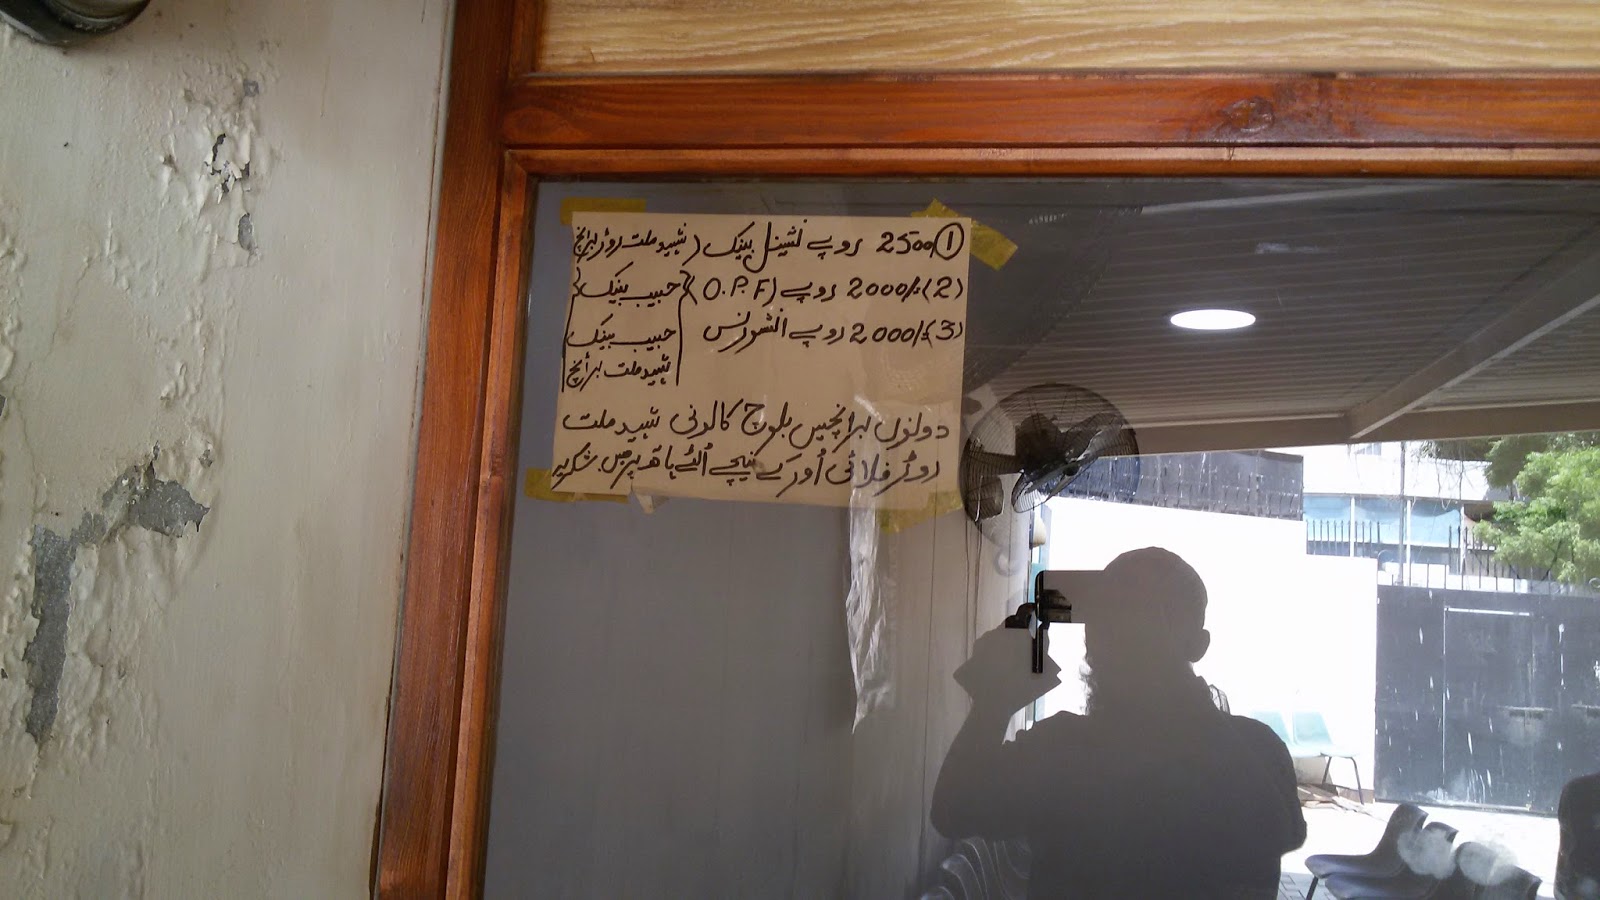 ① 2500 روپے نشینل بینک (شہید ملت روڑ برانچ
(2) 2000/. روپے (O.P.F) (حبیب بینک)
(3) 2000/. روپے انشورنس (حبیب بینک
شہید ملت برانچ)
دونوں برانچیں بلوچ کالونی شہید ملت
روڑ فلائی اُور کے نیچے اُلٹے ہاتھ پر ھیں. شکریہ